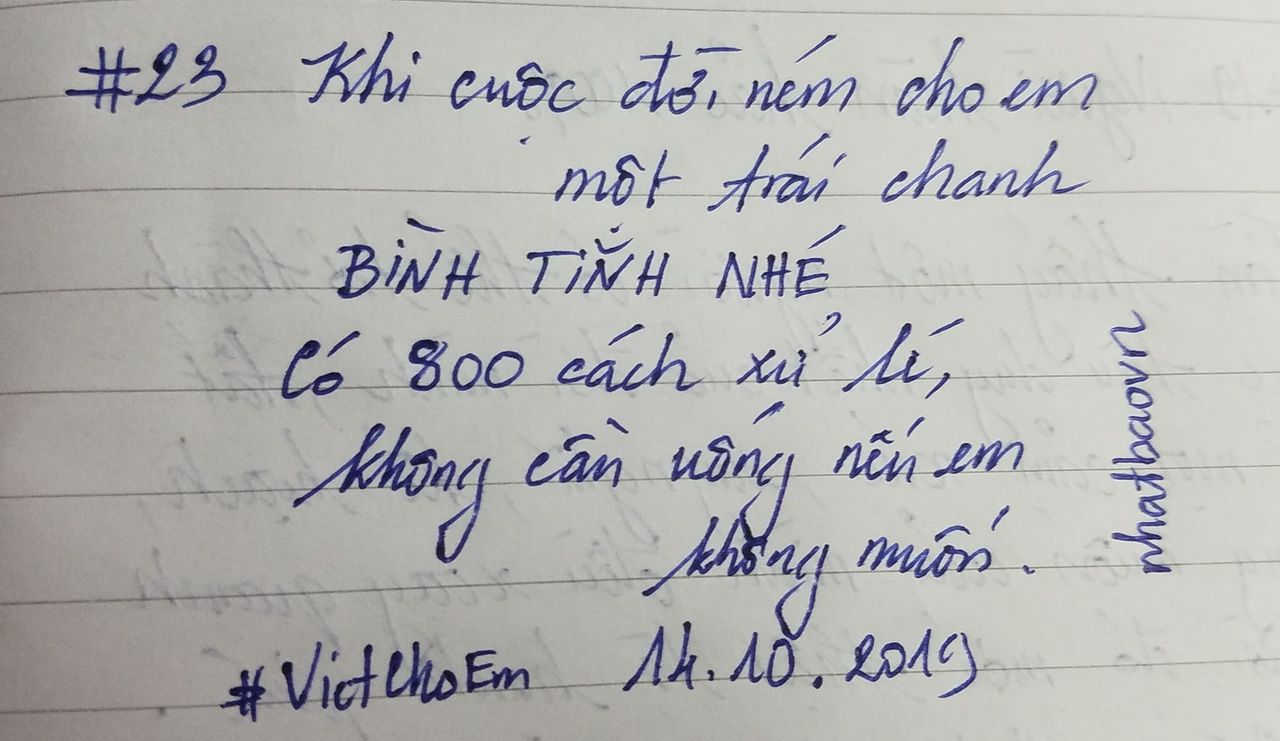 #23 Khi cuộc đời ném cho em
một trái chanh
BÌNH TĨNH NHÉ
Có 800 cách xử lí,
không cần uống nếu em
không muốn.
#VietChoEm 14.10.2019
nhatbaovn